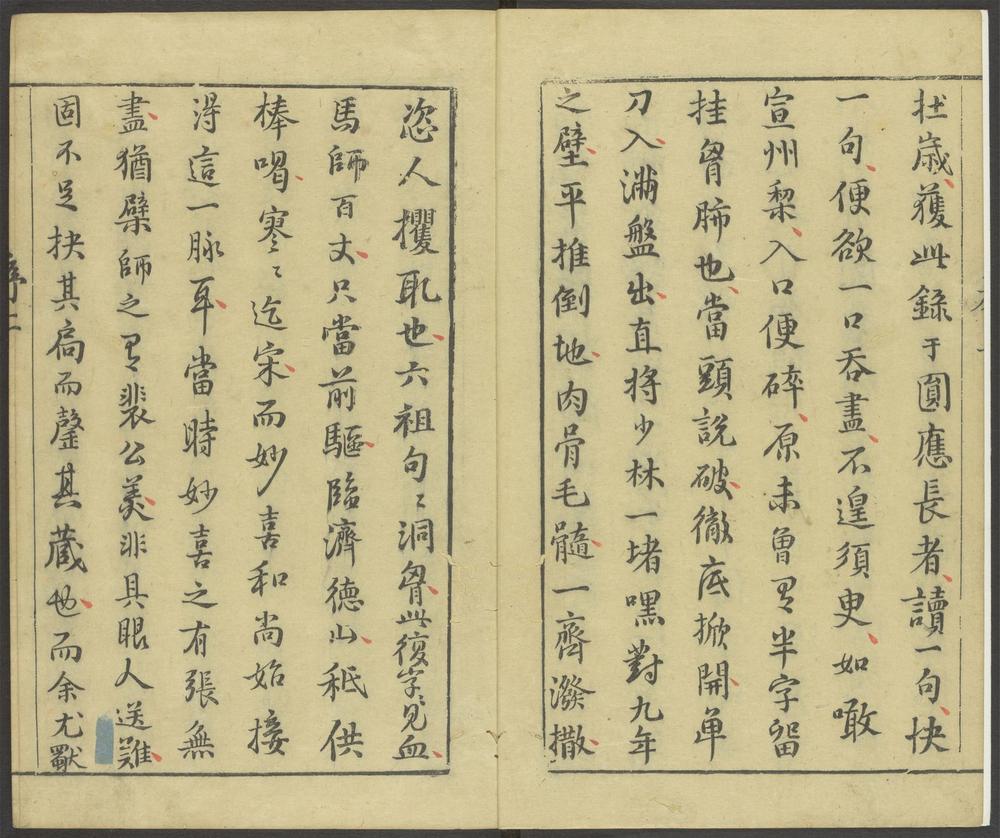 扗歲獲此錄于圓應長者讀一句快
一句便欲一口吞盡不遑須臾如噉
宣州梨入口便碎原未曾有半字畱
挂胷肺也當頭說破徹底掀開单
刀入滿盤出直將少林一堵嘿對九年
之壁平推倒地肉骨毛髓一齊潑撒
恣人攫取也六祖句〻洞胷此復字〻見血
馬師百丈只當前驅臨濟德山秪供
棒喝寥〻迄宋而妙喜和尚始接
淂這一脉耳當時妙喜之有張無
盡猶檗師之有裴公美非具眼人送難
固不足抉其扃而罄其藏也而余尤獸
序二